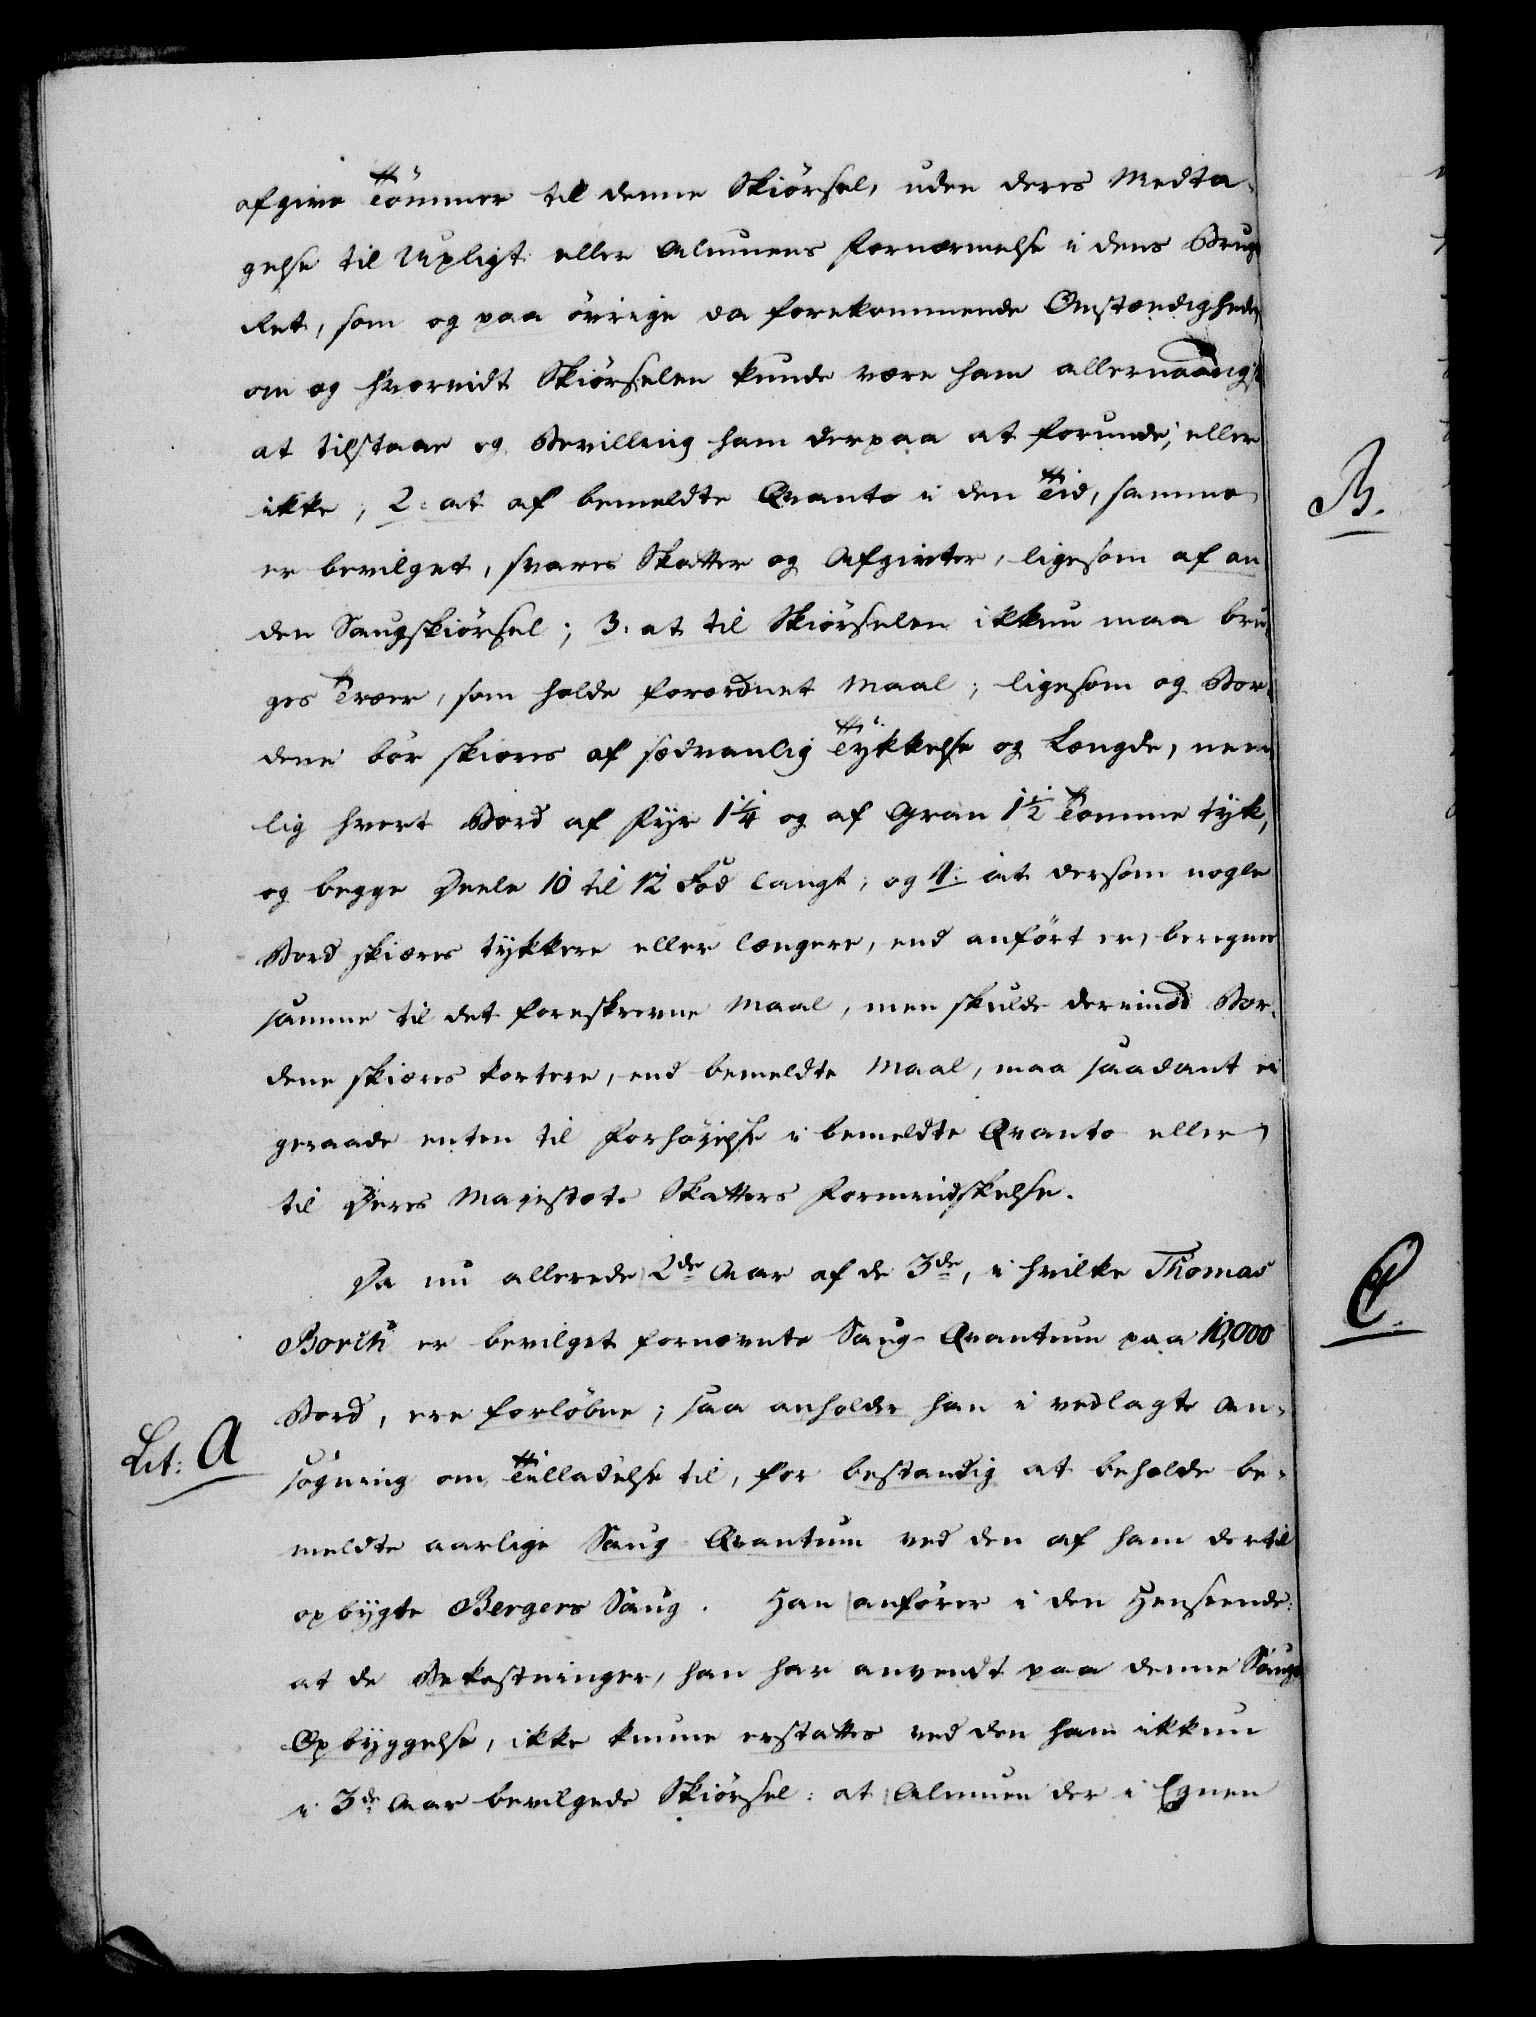 afgive Tömmer til denne Skiörsel, uden deres Medta-
gelse til Upligt eller Almuens Fornærmelse i dens Brugs
Ret, som og paa övrige da forekommende Omstændigheder,
om og hvorvidt Skiörselen kunde være ham allernaadigst
at tilstaae og Bevilling ham derpaa at forunde, eller
ikke; 2: at af bemeldte Qvanto i den Tid, samme
er bevilget, svares Skatter og Afgivter, ligesom af an
den Saugskiörsel; 3: at til Skiörselen ikkun maa bru
ges Træer, som holde forordnet Maal; ligesom og Bor-
dene bör skiæres af sædvanlig Tykkelse og Længde, nem
lig hvert Bord af Fyr 1¼ og af Gran 1½ Tomme tyk,
og begge Deele 10 til 12 Fod langt; og 4: at dersom nogle
Bord skiæres tykkere eller længere, end anfört er, beregnes
samme til det foreskrevne Maal, men skulde derimod Bor-
dene skiæres kortere, end bemeldte Maal, maa saadant ei
geraade enten til Forhöyelse i bemeldte Qvanto eller
til Deres Majestæts Skatters Formindskelse.
Da nu allerede 2de Aar af de 3de, i hvilke Thomas
Borch er bevilget fornævnte Saug-Qvantum paa 10,000
Bord, ere forlöbne; saa anholder han i vedlagte An-
Lit: A
sögning om Tilladelse til, for bestandig at beholde be-
meldte aarlige Saug-Qvantum ved den af ham dertil
opbygte Bergers Saug. Han anförer i den Henseende:
at de Bekostninger, han har anvendt paa denne Saugs
Opbyggelse, ikke kunne erstattes ved den ham ikkun
i 3de Aar bevilgede Skiörsel: at Almuen der i Egnen
B.
C.